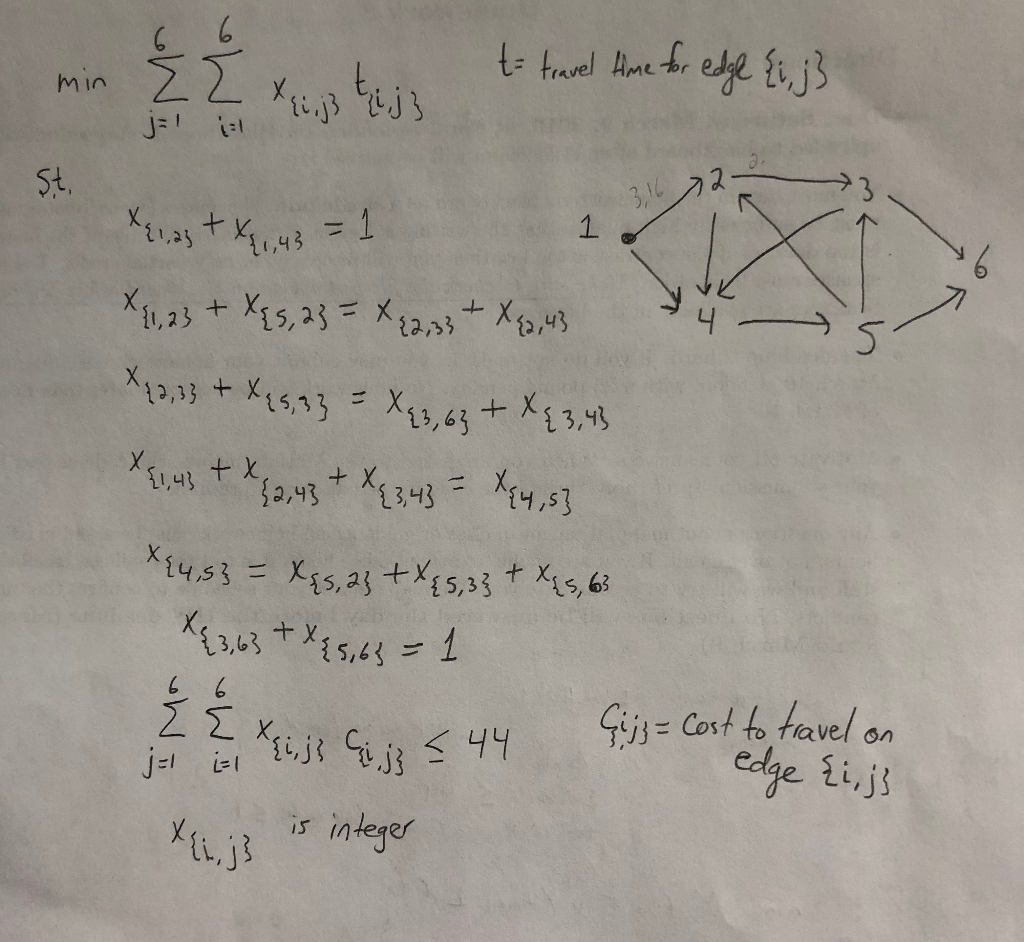 min 6∑j=1 6∑i=1 x{i,j} t{i,j}
t = travel time for edge {i,j}
St.
x{1,2} + x{1,4} = 1
x{1,2} + x{5,2} = x{2,3} + x{2,4}
x{2,3} + x{5,3} = x{3,6} + x{3,4}
x{1,4} + x{2,4} + x{3,4} = x{4,5}
x{4,5} = x{5,2} + x{5,3} + x{5,6}
x{3,6} + x{5,6} = 1
6∑j=1 6∑i=1 x{i,j} c{i,j} ≤ 44
c{i,j} = Cost to travel on
edge {i,j}
x{i,j} is integer
1
3,16
2
2,
3
4
5
6